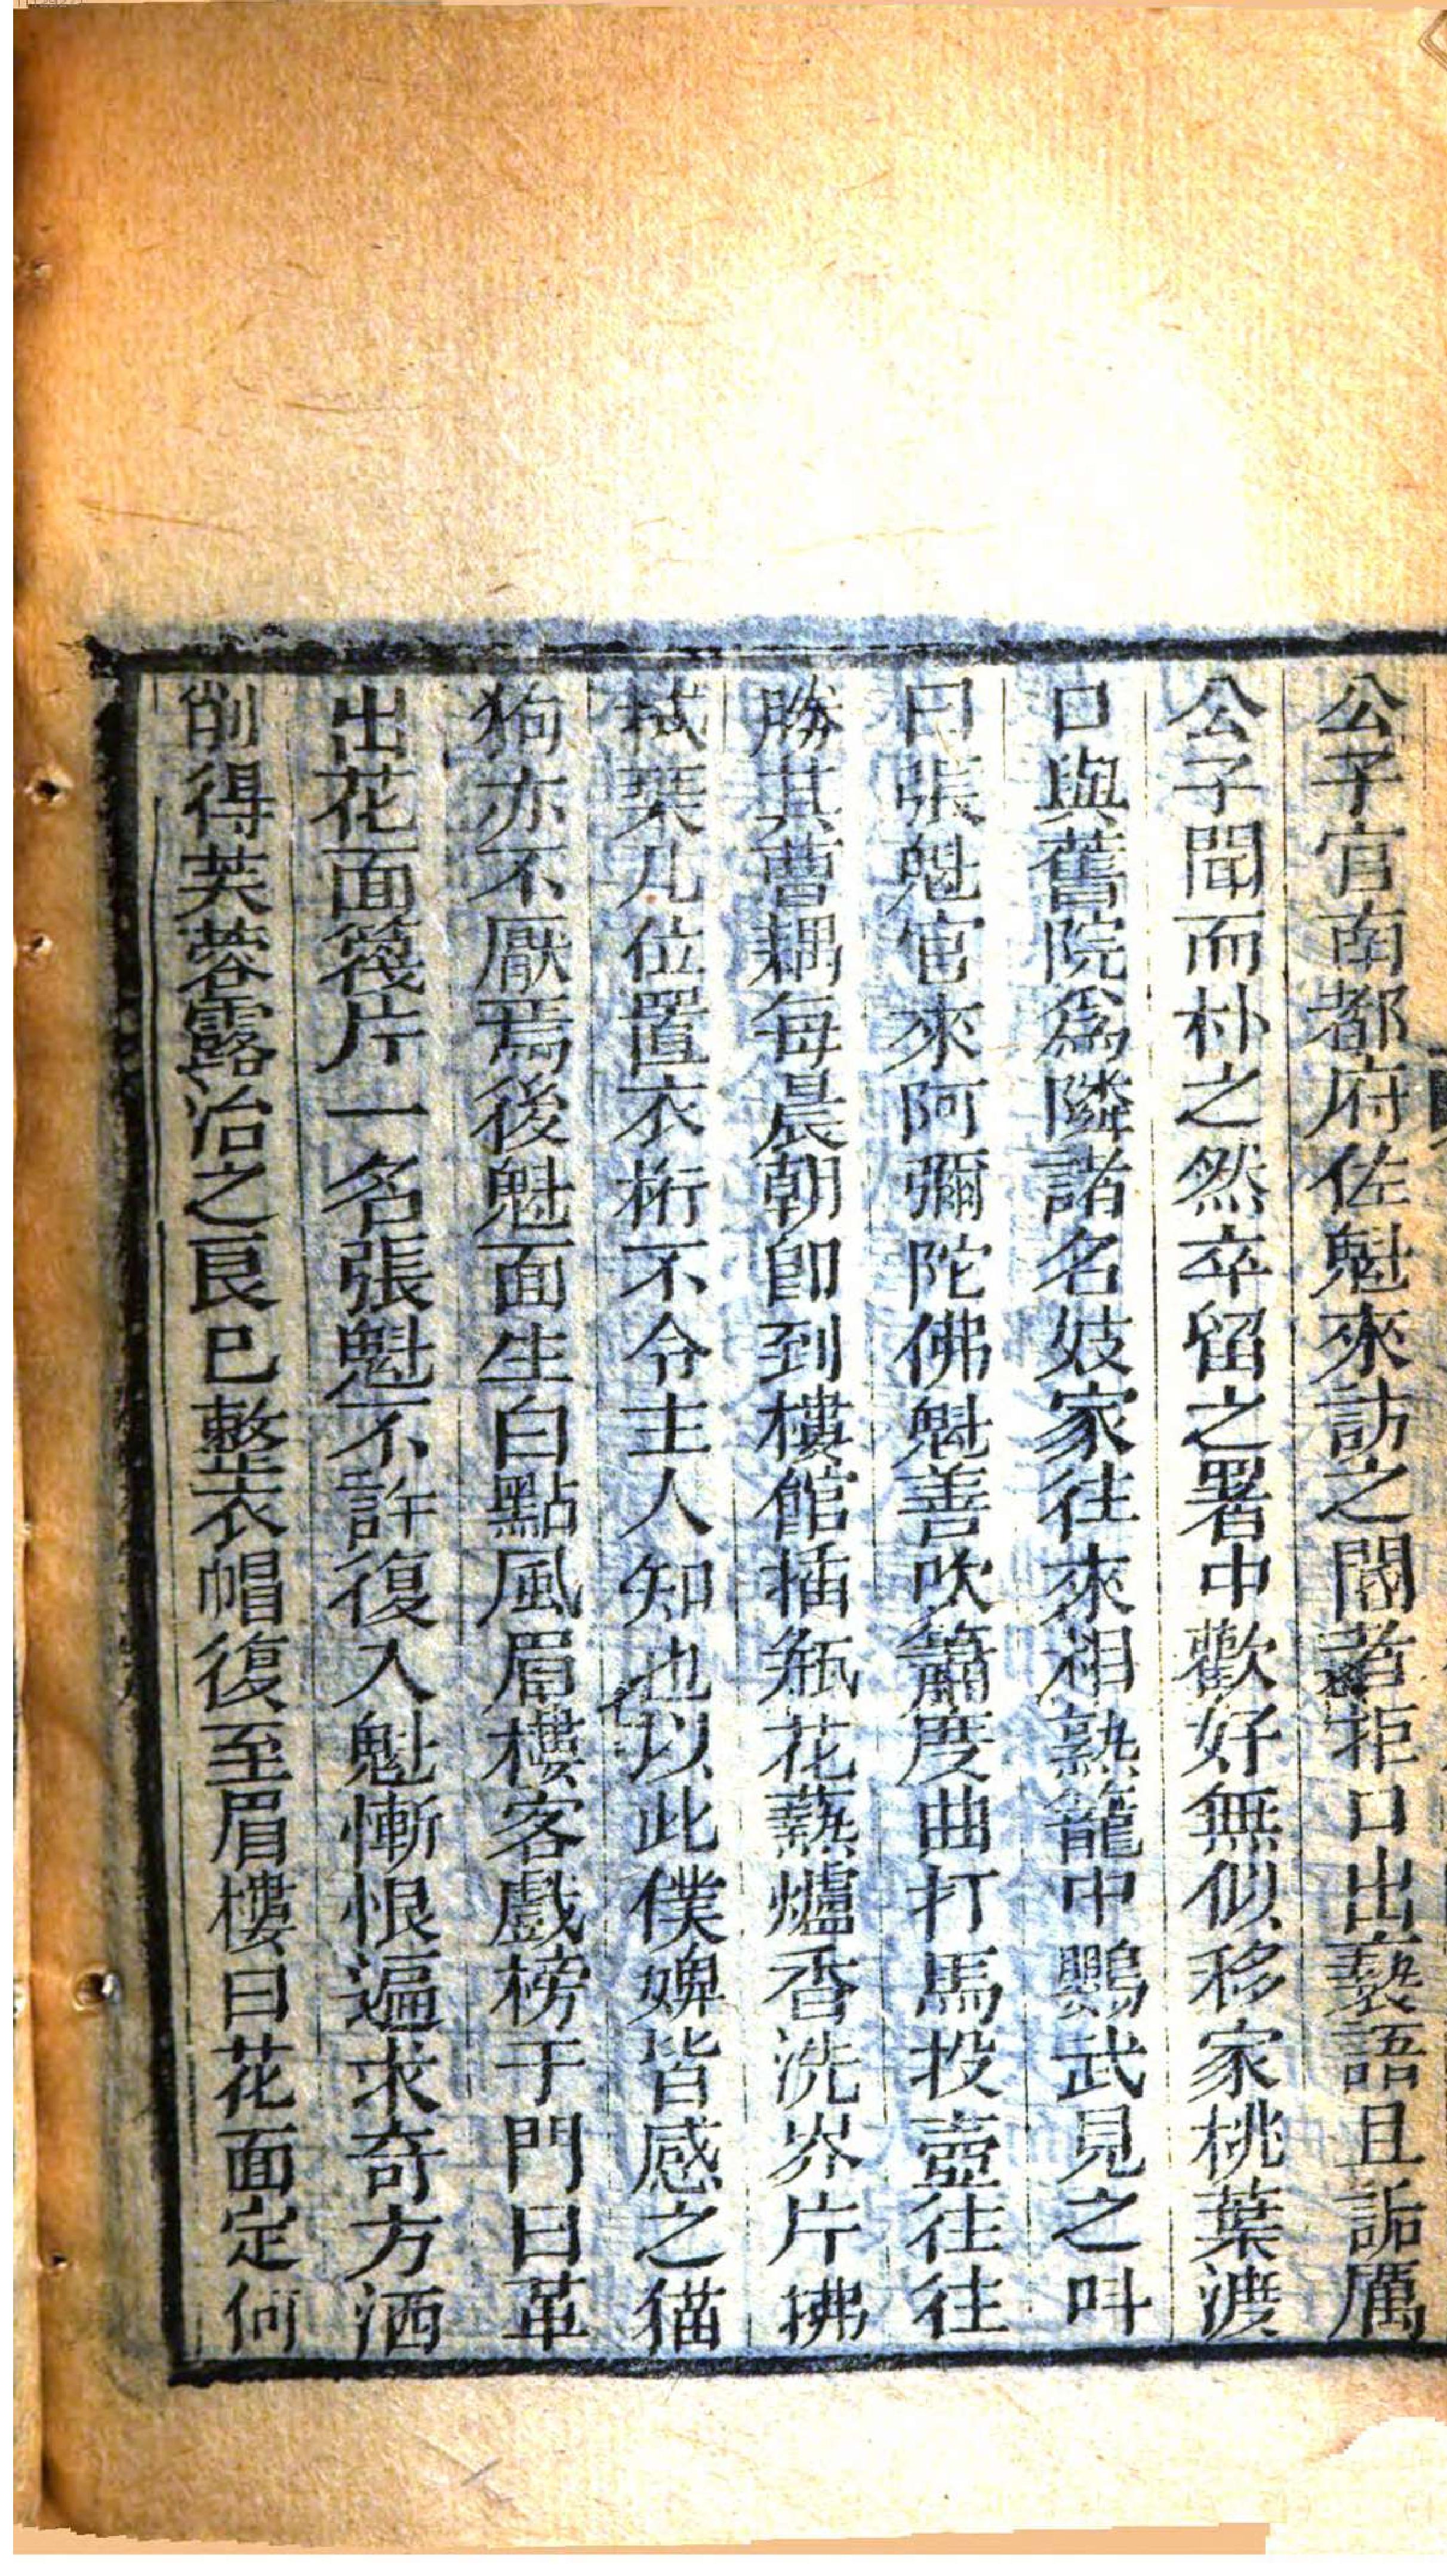 公子官南都府佐魁來訪之閽者拒口出褻語且詬厲
公子聞而朴之然卒留之署中歡好無似移家桃葉渡
口與舊院爲隣諸名妓家往來相熟籠中鸚武見之呌
曰張魁官來阿彌陀佛魁善吹簫度曲打馬投壺往往
勝其曹耦每晨朝卽到樓館插瓶花爇爐香洗岕片拂
拭琹几位置衣桁不令主人知也以此僕婢皆感之猫
狗亦不厭焉後魁面生白點風眉樓客戲榜于門曰革
出花面篾片一名張魁不許復入魁慚恨遍求奇方洒
削得芙蓉露治之良已整衣帽復至眉樓曰花面定何